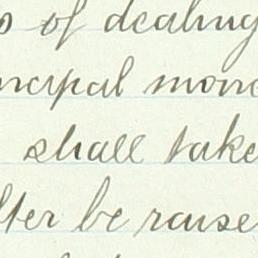 of dealing
ncipal mone
shall take
fter be raise